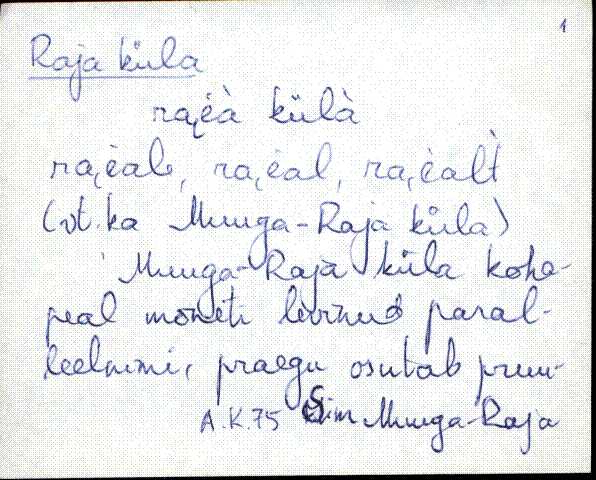 1
Raja küla
ra,èà külà
ra,èale, ra,èal, ra,èalt̀
(vt. ka Muuga-Raja küla)
Muuga-Raja küla koha-
peal mõneti levinud paral-
leelnimi, praegu osutab pruu-
A.K.75 Siim Muuga-Raja